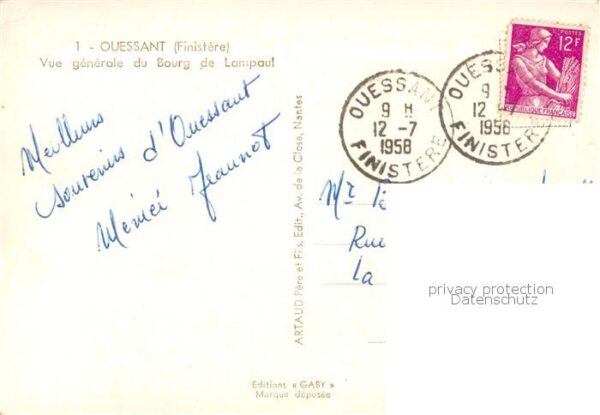 1 - OUESSANT (Finistère)
Vue générale du Bourg de Lampaul
Meilleurs
souvenirs d'Ouessant
Jeannot
ARTAUD Père et Fils, Edit., Av. de la Close, Nantes
Editions « GABY »
Marque déposée
OUESSANT
9 H
12 -7
1958
FINISTERE
OUESSANT
9
12 -7
1958
FINISTERE
POSTES
12F
REPUBLIQUE FRANÇAISE
Mr
Rue
La
privacy protection
Datenschutz